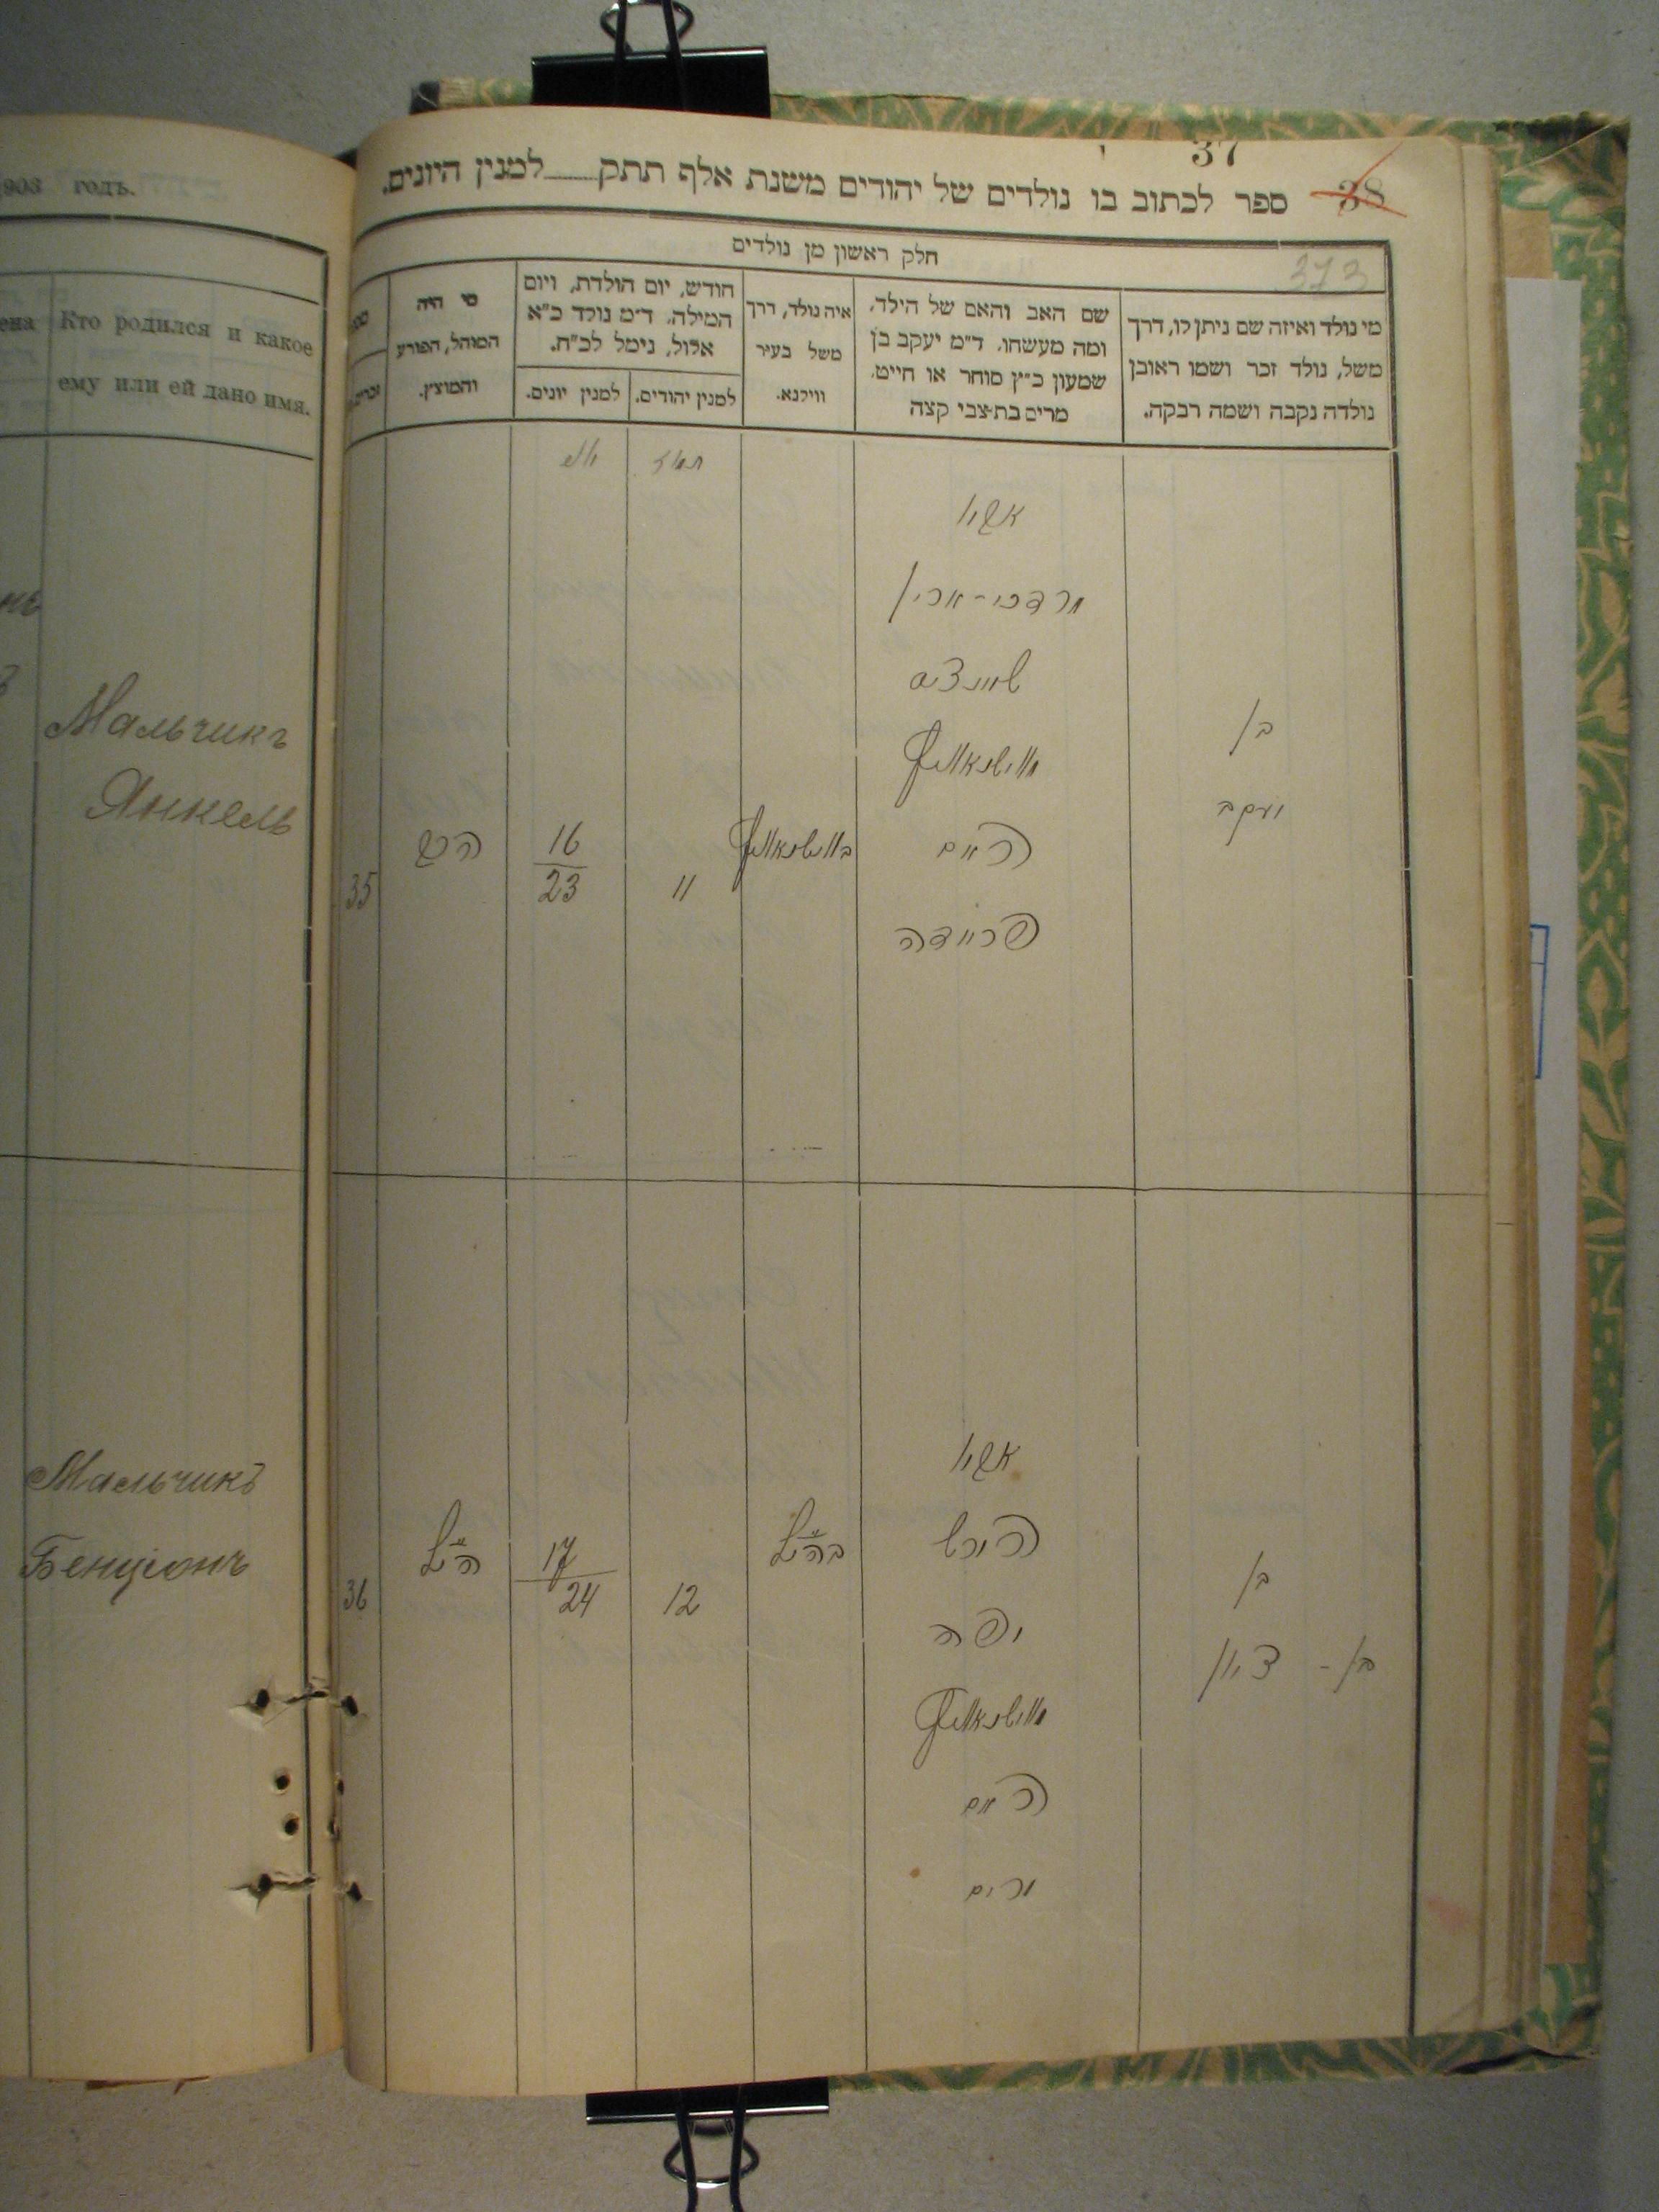 903 годъ.
ена
Кто родился и какое
ему или ей дано имя.
Мальчикъ
Янкель
Мальчикъ
Бенціонъ
37
38
ספר לכתוב בו נולדים של יהודים משנת אלף תתק___למנין היונים.
373
חלק ראשון מן נולדים
מי נולד ואיזה שם ניתן לו, דרך
משל, נולד זכר ושמו ראובן
נולדה נקבה ושמה רבקה.
שם האב והאם של הילד,
ומה מעשהו. ד״מ יעקב בן
שמעון כ״ץ סוחר או חייט,
מרים בת־צבי קצה
איה נולד, דרך
משל בעיר
ווילנא.
חודש, יום הולדת, ויום
המילה. ד״מ נולד כ״א
אלול, נימל לכ״ח.
למנין יהודים.
למנין יונים.
מי היה
המוהל, הפורע
והמוצץ.
אביו
מרדכי-אהרן
האם
פריידה
בן
יעקב
16
23
11
35
אביו
הירש
יפה
האם
מרים
בן
בן - ציון
17
24
12
36